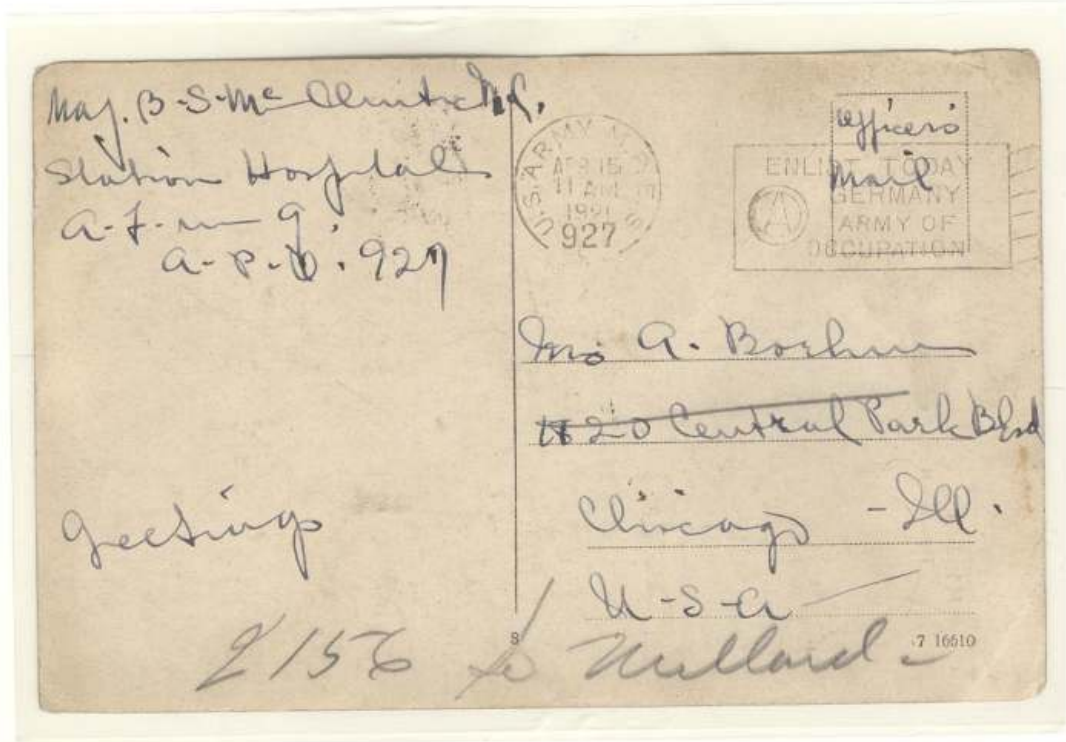 Maj. B-S-Mc Clintic M.C.
Station Hospital
A-F-in G
A-P-O. 927
Greetings
U.S. ARMY M.P.
APR 15
11 AM
1921
927
Officers
Mail
ENLIST TODAY
GERMANY
ARMY OF
OCCUPATION
A
A. Boehm
Central Park Blvd
Chicago - Ill.
U-S-A
S
7 16510
2156 Millard